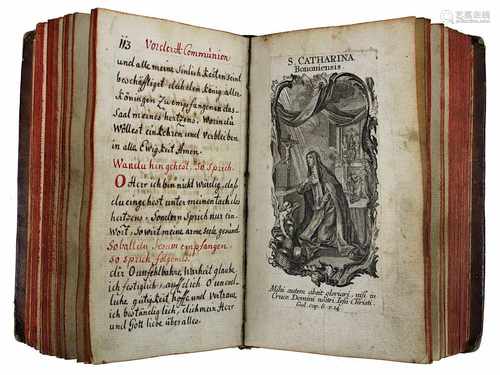 113 Vor der H. Communion
und alle meine Sinlichkeiten seint
beschäfftiget dich den König aller
Königen Zu empfangen in das
Saal meines hertzens, Worin du
Wollest einkehren und verbleiben
in alle Ewigkeit Amen.
Wan du hin gehest, so sprich.
O Herr ich bin nicht würdig, daß
du eingehest unter mein tach des
hertzens, sondern Sprich nur ein
Wort, So wirt meine arme seele gesund
So bald du Jesum empfangen
so sprich folgents.
dir O unfehlbahre Warheit glaube
ich festiglich, auf dich O unend-
liche gütigkeit hoffe und Vertraue
ich beständiglich, dich mein Herr
und Gott liebe über alles.
S. CATHARINA
Bononiensis
Mihi autem absit gloriari, nisi in
Cruce Domini nostri Jesu Christi.
Gal. cap. 6. v. 14.